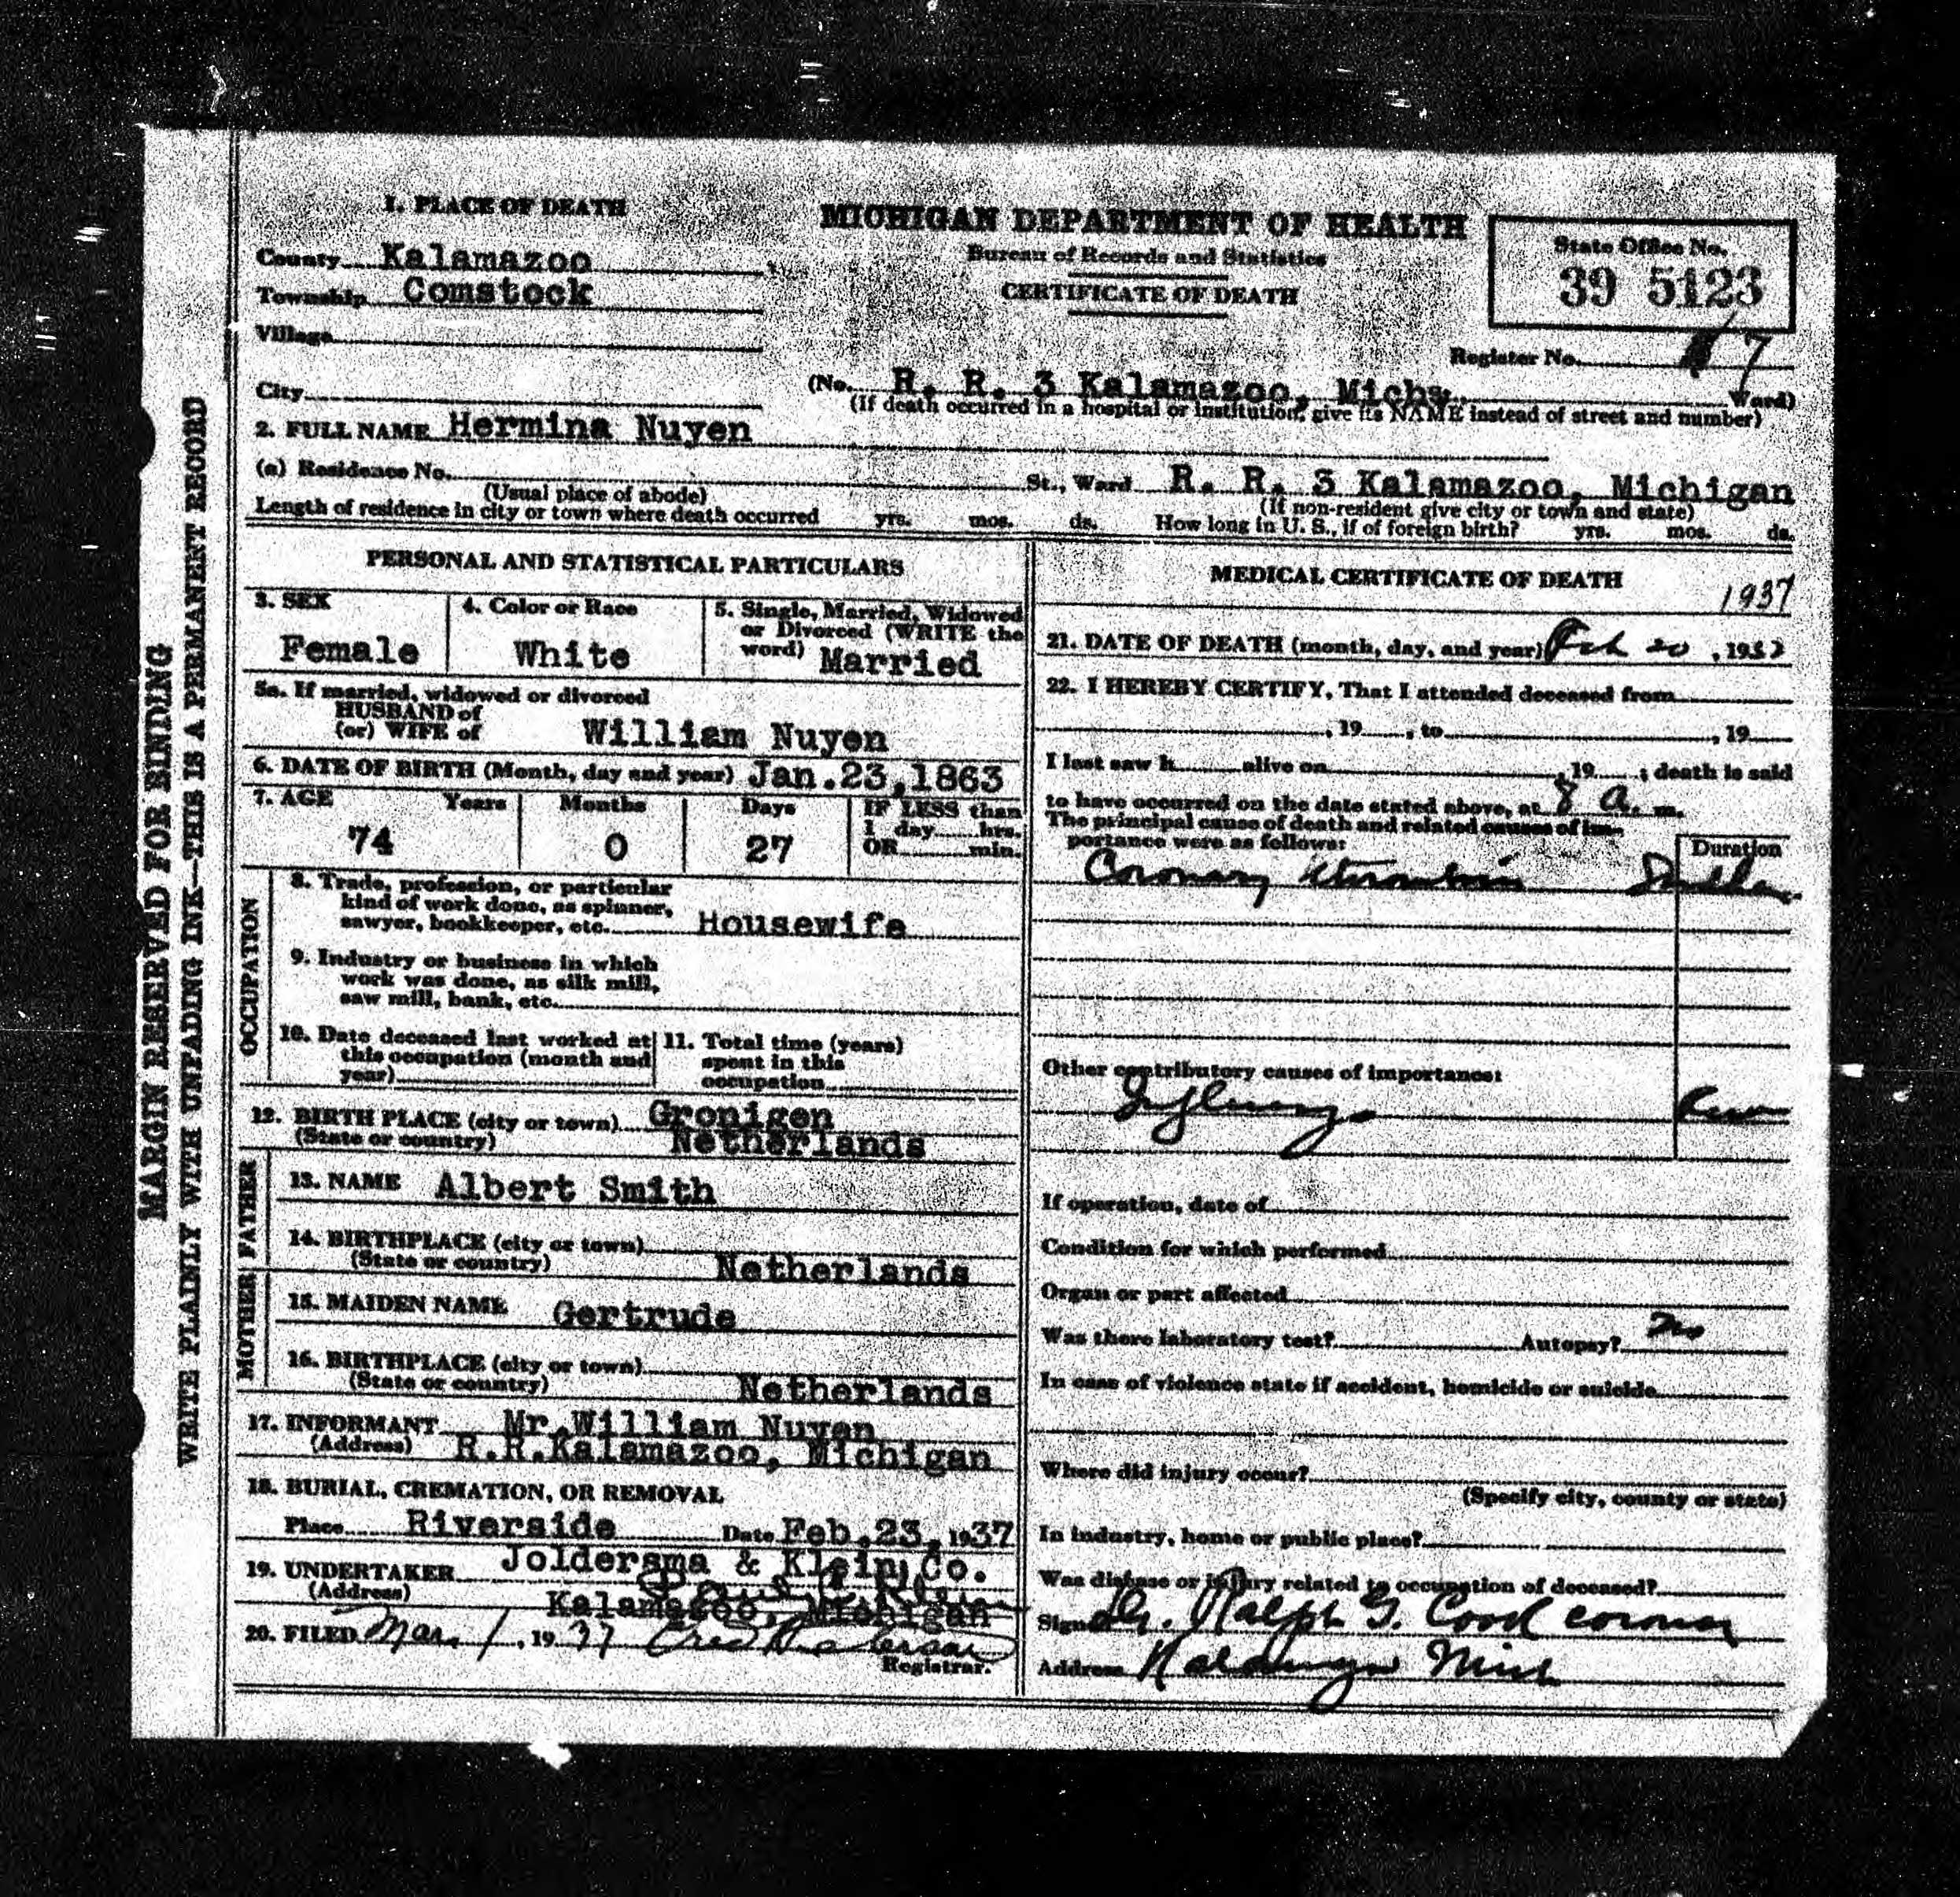 1. PLACE OF DEATH
County Kalamazoo
Township Comstock
Village
City
MICHIGAN DEPARTMENT OF HEALTH
Bureau of Records and Statistics
CERTIFICATE OF DEATH
State Office No.
39 5123
Register No. 7
(No. R. R. 3 Kalamazoo, Mich. Ward)
(If death occurred in a hospital or institution, give its NAME instead of street and number)
2. FULL NAME Hermina Nuyen
(a) Residence No. St., Ward R. R. 3 Kalamazoo, Michigan
(Usual place of abode) (If non-resident give city or town and state)
Length of residence in city or town where death occurred yrs. mos. ds. How long in U. S., if of foreign birth? yrs. mos. ds.
MARGIN RESERVED FOR BINDING
WRITE PLAINLY WITH UNFADING INK—THIS IS A PERMANENT RECORD
PERSONAL AND STATISTICAL PARTICULARS
3. SEX
Female
4. Color or Race
White
5. Single, Married, Widowed
or Divorced (WRITE the
word) Married
5a. If married, widowed or divorced
HUSBAND of
(or) WIFE of William Nuyen
6. DATE OF BIRTH (Month, day and year) Jan.23,1863
7. AGE Years Months Days IF LESS than
1 day hrs.
74 0 27 OR min.
OCCUPATION
8. Trade, profession, or particular
kind of work done, as spinner,
sawyer, bookkeeper, etc. Housewife
9. Industry or business in which
work was done, as silk mill,
saw mill, bank, etc.
10. Date deceased last worked at
this occupation (month and
year)
11. Total time (years)
spent in this
occupation
12. BIRTH PLACE (city or town) Gronigen
(State or country) Netherlands
FATHER
13. NAME Albert Smith
14. BIRTHPLACE (city or town)
(State or country) Netherlands
MOTHER
15. MAIDEN NAME Gertrude
16. BIRTHPLACE (city or town)
(State or country) Netherlands
17. INFORMANT Mr.William Nuyen
(Address) R.R.Kalamazoo, Michigan
18. BURIAL, CREMATION, OR REMOVAL
Place Riverside Date Feb.23,1937
19. UNDERTAKER Joldersma & Klein Co.
(Address) Kalamazoo, Michigan
20. FILED Mar. 1, 1937
Registrar.
MEDICAL CERTIFICATE OF DEATH
1937
21. DATE OF DEATH (month, day, and year) Feb 20, 193
22. I HEREBY CERTIFY, That I attended deceased from
, 19 , to , 19
I last saw h alive on , 19 ; death is said
to have occurred on the date stated above, at 8 a. m.
The principal cause of death and related causes of im-
portance were as follows: Duration
Coronary thrombosis Sudden
Other contributory causes of importance:
Influenza
If operation, date of
Condition for which performed
Organ or part affected
Was there laboratory test? Autopsy? no
In case of violence state if accident, homicide or suicide
Where did injury occur?
(Specify city, county or state)
In industry, home or public place?
Was disease or injury related to occupation of deceased?
Signed Dr. Ralph G. Cook coroner
Address Kalamazoo Mich